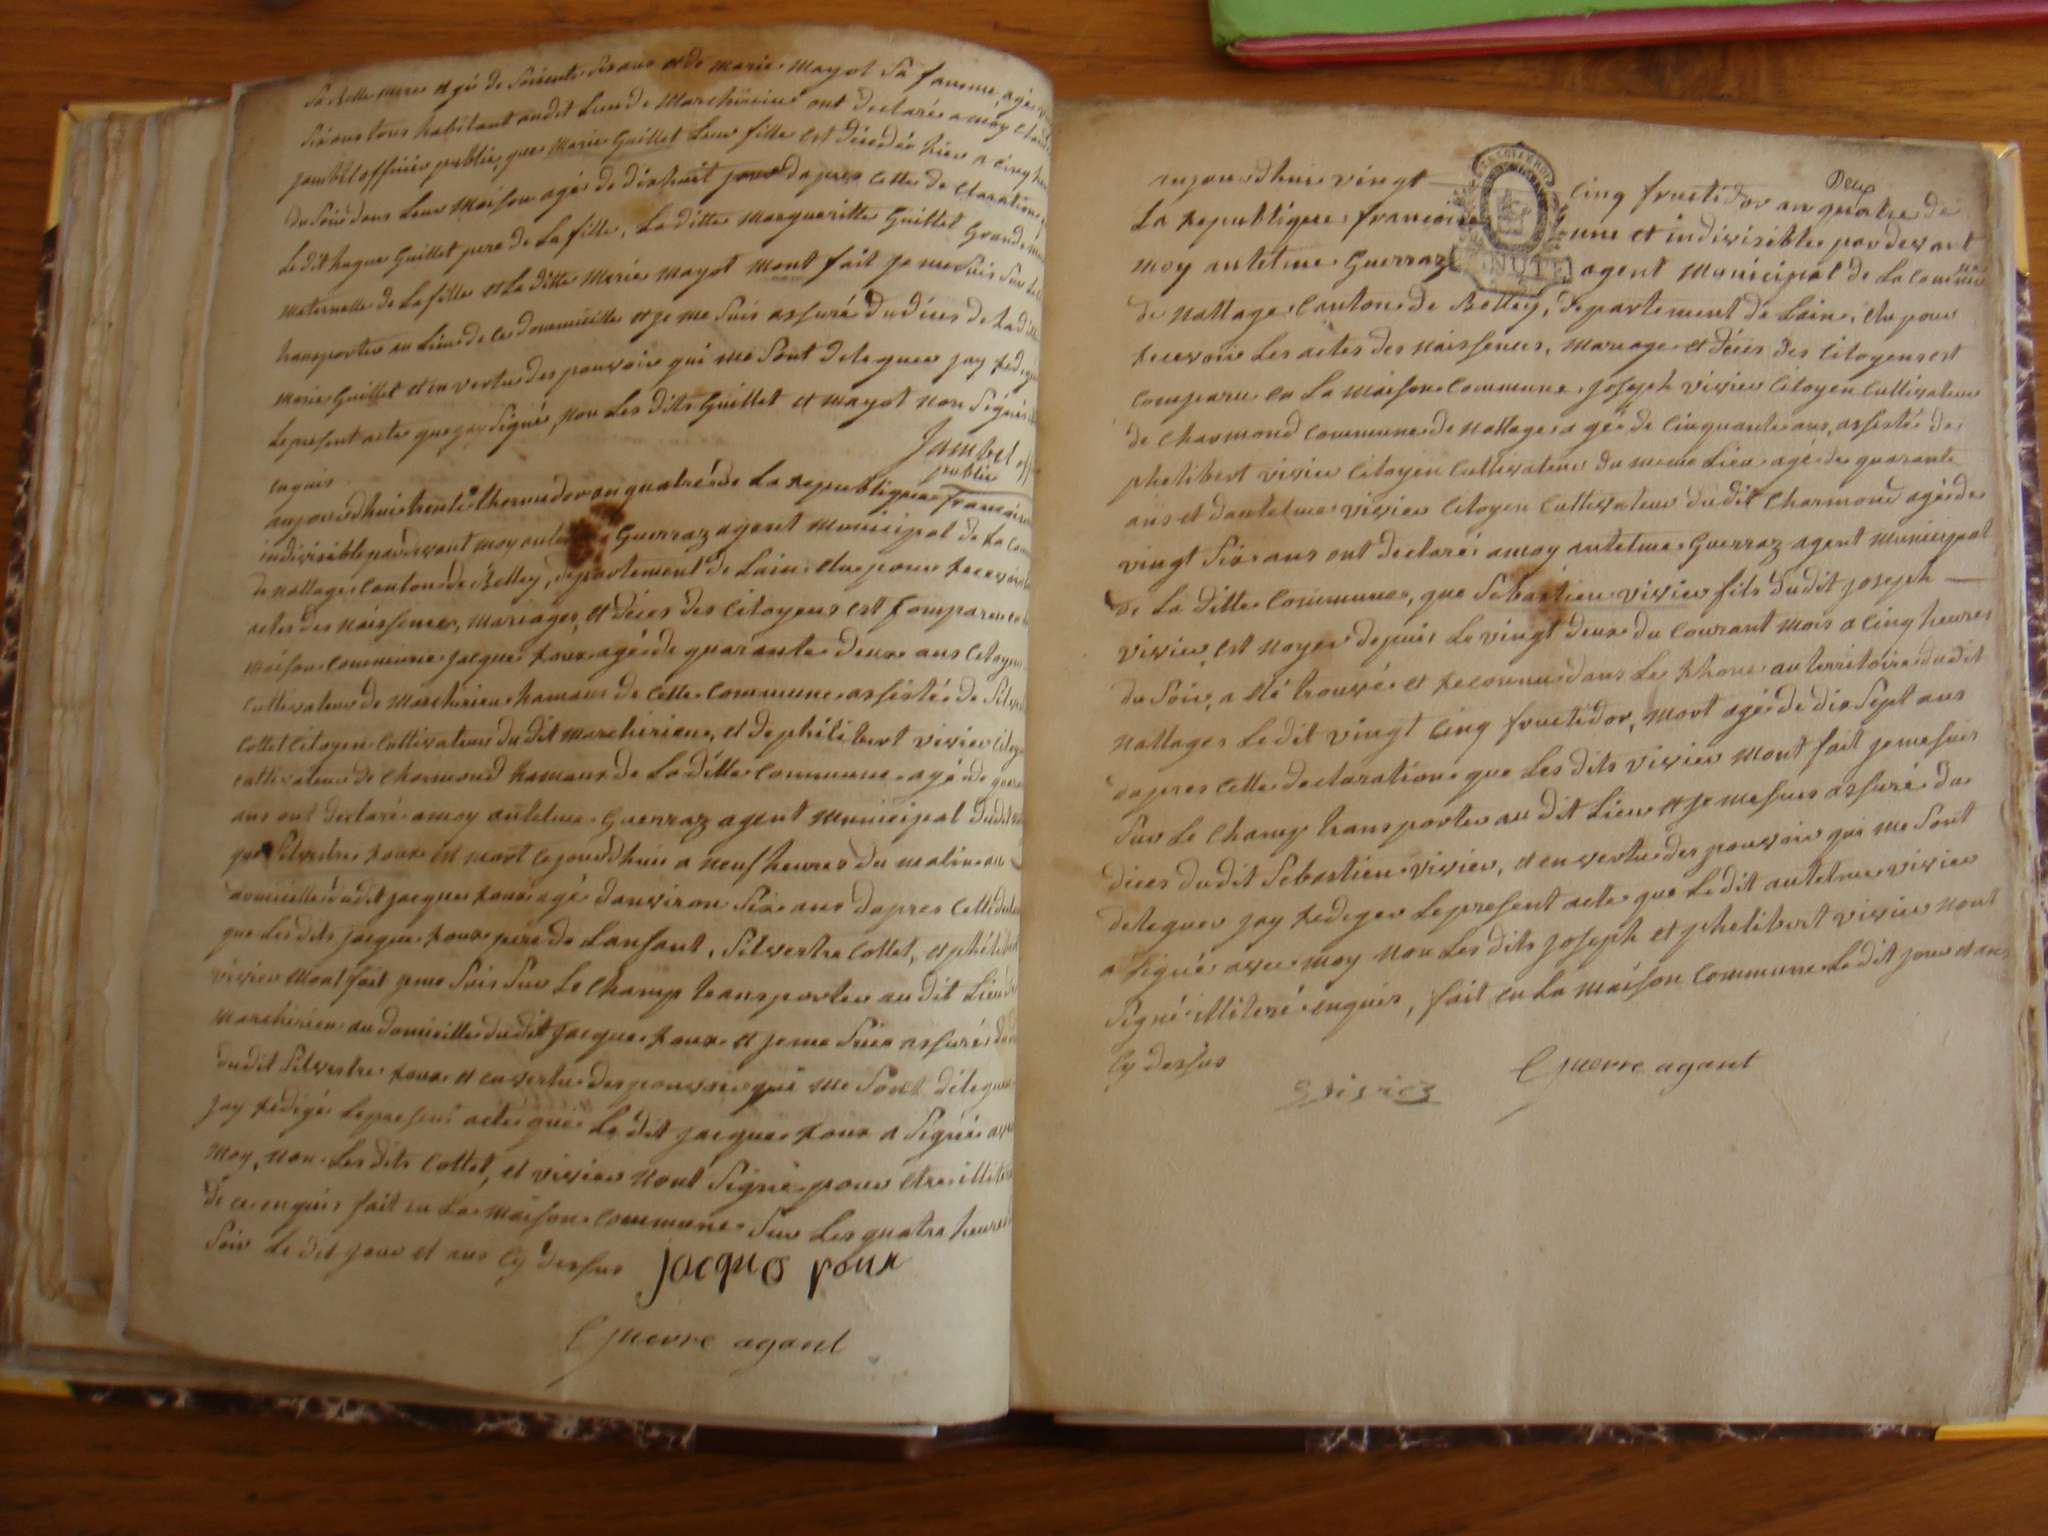 Sa belle mere et gé de Soixente Six ans et de marie mayot Sa famme, agé
Six ans tous habitant audit Lieu de Marchirieu ont declaré a moy
jambel officier public, que Marie Guillet Leur fille est décedée hier a cinq
du Soir dans Leur Maison agé de dixhuit jour dapres cette declaration
Ledit hugue Guillet pere de La fille, Laditte Margueritte Guillet Grande
maternelle de La fille et La ditte Marie mayot mont fait je me Suis Sur
transporter au Lieu de ce doumicille et je me Suis assuré du déces de La
marie Guillet et en vertu des pouvoir qui me Sont deleguer jay
Lepresent acte que jay Signé, non Les dits Guillet et mayot non Signés
enquis
Jambel off
public
aujourdhui trente thermidor an quatre de La republique francaise
indivisible par devant moy Guerraz agent Municipal de La
de nattage Canton de Belley, departement de Lain, elu pour recevoir
actes des naissence, mariages, et déces des Citoyens est Comparu
maison Commune jacque roux agé de quarante deux ans Citoyen
Cultivateur de marchirieu hamaux de cette Commune assisté de
Collet Citoyen Cultivateur dudit marchirieu, et de philibert vivier
cultivateur de Charmond hamaux de La ditte Commune agé de
ans ont declaré a moy antelme Guerraz agent Municipal dudit
que Silvestre roux est mort ce jourdhuis a neuf heures du matin au
domicille dudit jacque roux agé danviron Six ans dapres cette
que Les dits jacque roux pere de Lanfant, Silvestre Collet, et
vivier Mont fait jeme Suis Sur Le Champ transporter au dit Lieu
marchirieu au domicille dudit jacque roux et je me Suis assuré
dudit Silvestre roux et en vertu des pouvoir qui me Sont délegue
jay rédigé Lepresent acte que Le dit jacque roux a Signé
moy, non Les dits Collet, et vivier nont Signé pour etre
de ce enquis fait en La maison Commune Sur Les quatre heures
Soir Le dit jour et ans Cy dessus jacque roux
Guerre agant
aujourdhui vingt Cinq fructidor an quatre de
Deux
La republique francoise une et indivisible par devant
moy antelme Guerraz agent Municipal de La Commune
MINUTE
de nattage Canton de Belley, departement de Lain, elu pour
recevoir Les actes des naissences, mariage et déces des Citoyens est
Comparu en La maison Commune joseph vivier Citoyen Cultivateur
de Charmond Commune de nattages agé de Cinquante ans, assisté de
phelibert vivier Citoyen Cultivateur du meme Lieu agé de quarante
ans et dantelme vivier Citoyen Cultivateur dudit Charmond agé de
vingt Six ans ont declaré a moy antelme Guerraz agent municipal
de La ditte Commune, que Sebastien vivier fils dudit joseph
vivier est noyer depuis Le vingt deux du Courant mois a Cinq heures
du Soir, a été trouvé et reconnu dans Le Rhone au territoire dudit
nattages Ledit vingt Cinq fructidor, mort agé de dix Sept ans
dapres cette declaration que Les dits vivier Mont fait jemesuis
Sur Le Champ transporter au dit Lieu et je mesuis assuré du
déces dudit Sebastien vivier, et en vertu des pouvoir qui me Sont
deleguer jay rediger Lepresent acte que Ledit antelme vivier
a Signé avec moy non Les dits joseph et phelibert vivier nont
Signé illiteré enquis, fait en La maison Commune Ledit jour et ans
Cy dessus
Guerre agant